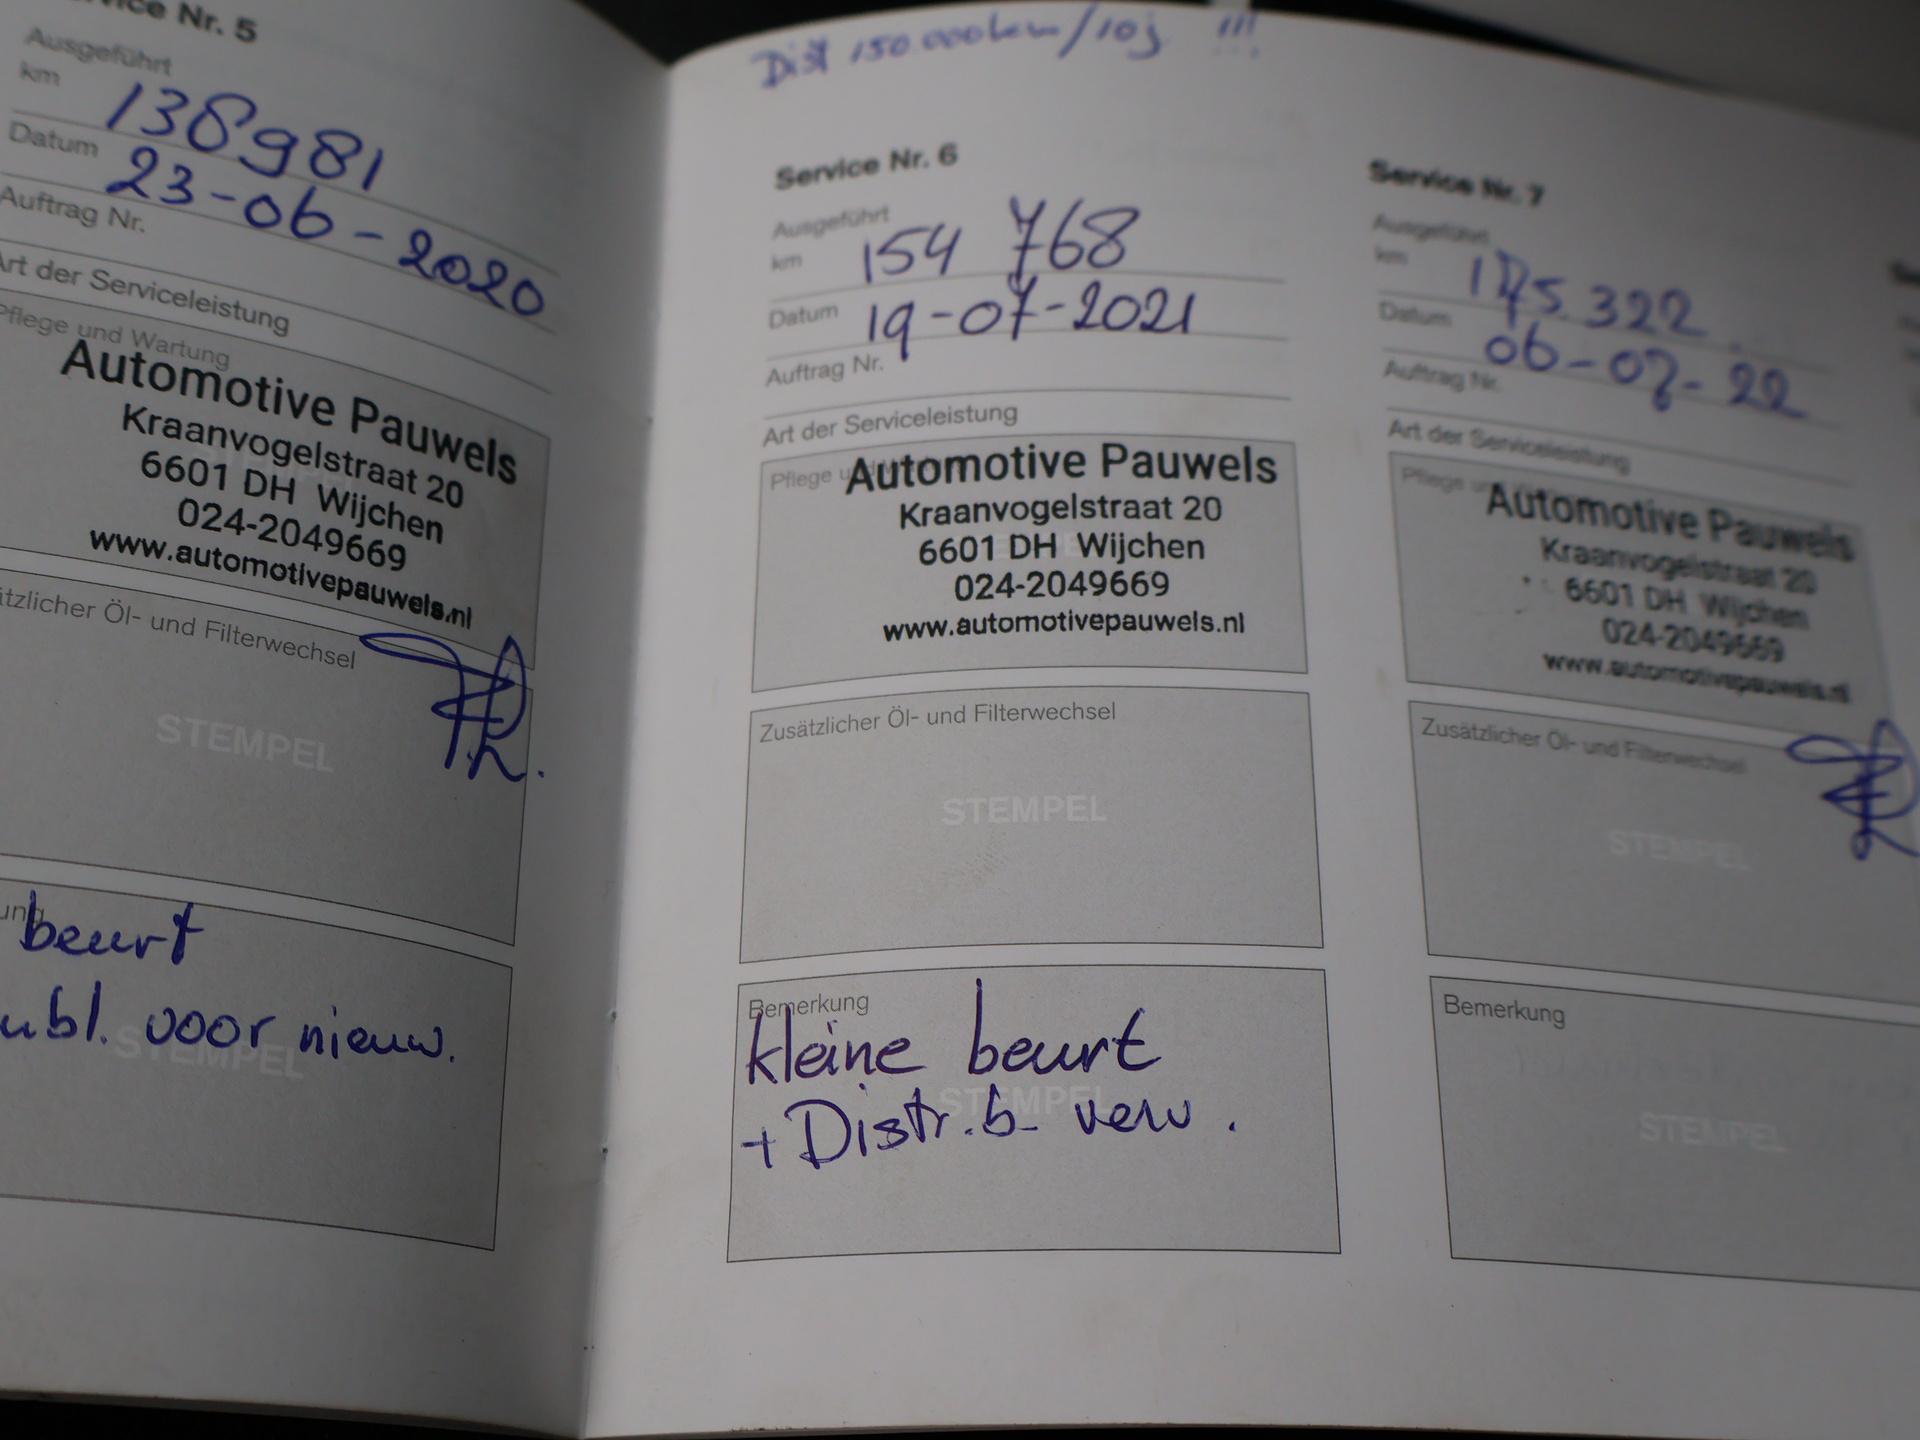 Service Nr. 5
Ausgeführt
km 138981
Datum 23-06-2020
Auftrag Nr.
Art der Serviceleistung
Pflege und Wartung
Automotive Pauwels
Kraanvogelstraat 20
6601 DH Wijchen
024-2049669
www.automotivepauwels.nl
Öl- und Filterwechsel
STEMPEL
beurt
voor nieuw.
STEMPEL
Dist 150.000km/10j !!!
Service Nr. 6
Ausgeführt
km 154 768
Datum 19-07-2021
Auftrag Nr.
Art der Serviceleistung
Pflege und
Automotive Pauwels
Kraanvogelstraat 20
6601 DH Wijchen
024-2049669
www.automotivepauwels.nl
Zusätzlicher Öl- und Filterwechsel
STEMPEL
Bemerkung
kleine beurt
+ Distr.b. verv.
STEMPEL
Service Nr. 7
Ausgeführt
km 175.322
Datum
Auftrag Nr.
Art der Serviceleistung
Pflege und
Automotive Pauwels
Kraanvogelstraat 20
6601 DH Wijchen
024-2049669
www.automotivepauwels.nl
Zusätzlicher Öl- und Filterwechsel
STEMPEL
Bemerkung
STEMPEL